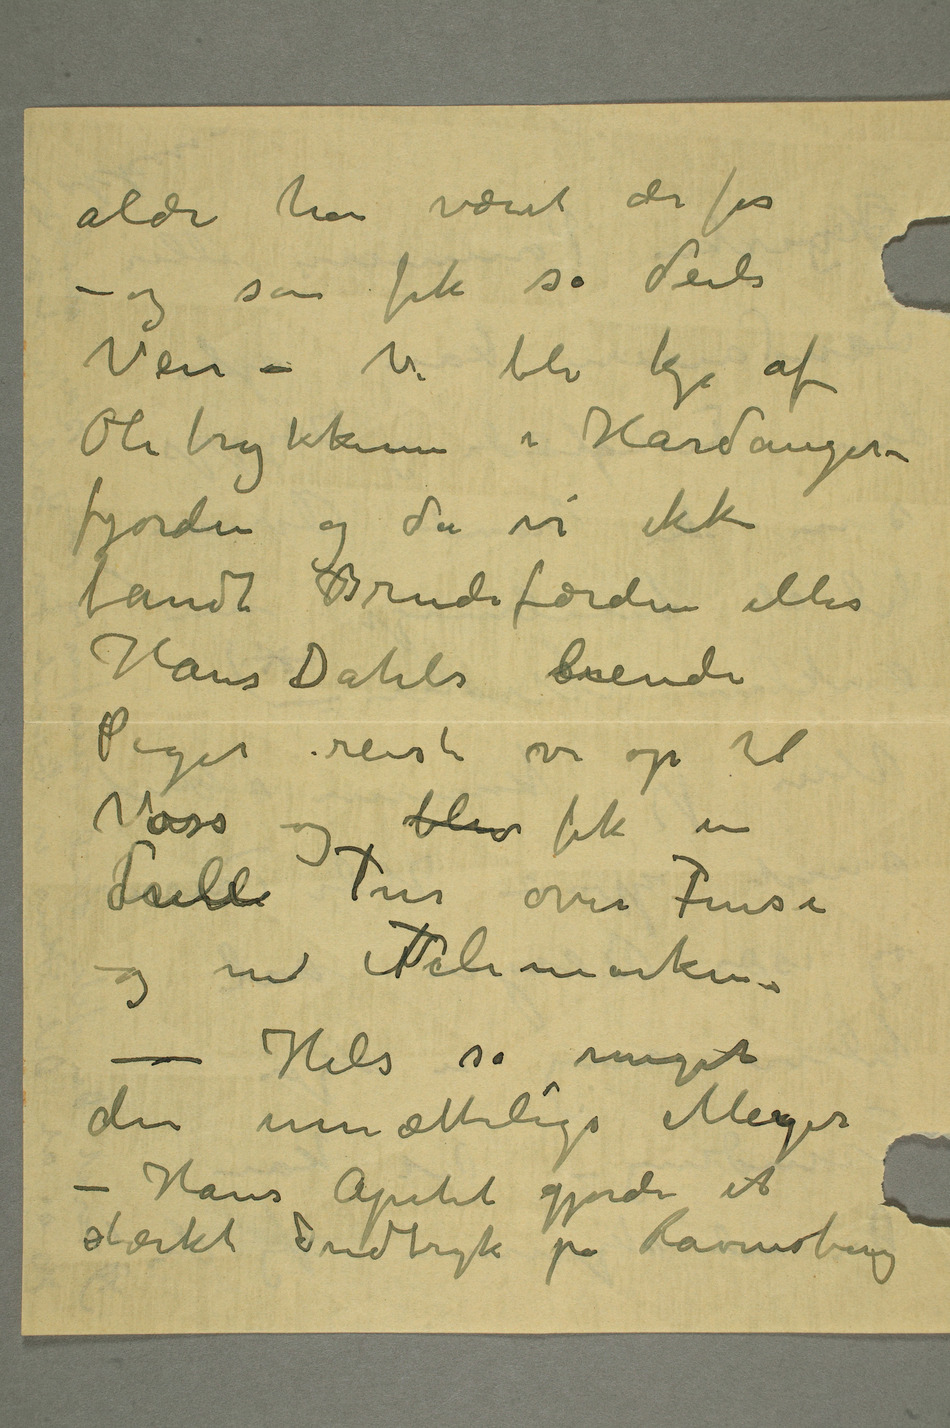 aldri har været der før
– og som fik så deili
Veir – Vi blev kje af
Olietrykkene i Hardanger-
fjorden og da vi ikke
fandt Brudefærden eller
Hans Dahls leende
Piger reiste vi op til
Voss og blev fik en
deili Tur over Finse
og ned i Telemarken.
— Hils så meget
den umættelige Meyer
– Hans Apetit gjorde et
stærkt Indtryk på Ravensberg